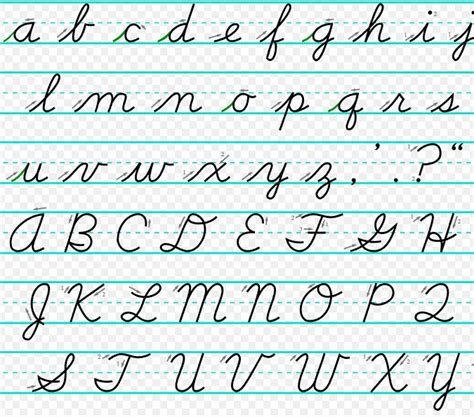 a b c d e f g h i j
l m n o p q r s
u v w x y z , ' . ? “
A B C D E F G H
J K L M N O P Q
S T U V W X Y